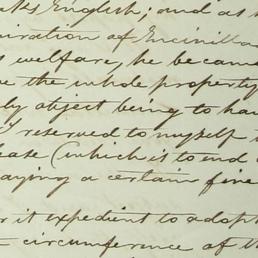 English; and as
iration of Encinillas
s welfare, he becam
e the whole property
ly object being to ha
I reserved to myself
ease (which is to end
aying a certain fine
r it expedient to adopt
circumference of th